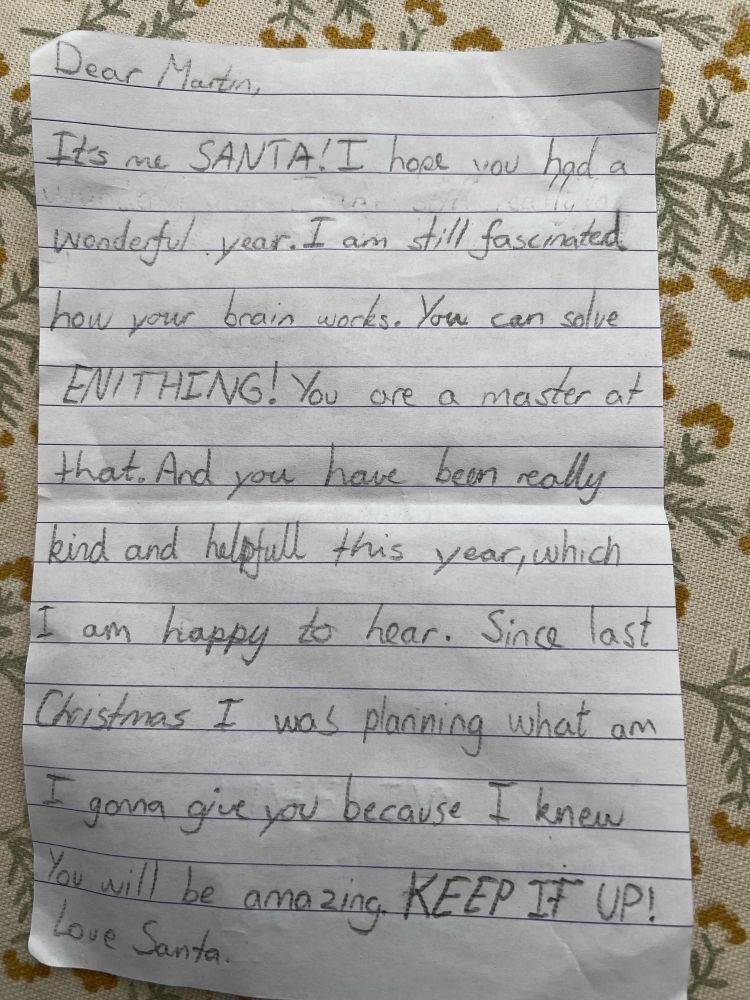 Dear Martin,
It's me SANTA! I hope you had a
wonderful year. I am still fascinated
how your brain works. You can solve
ENITHING! You are a master at
that. And you have been really
kind and helpfull this year, which
I am happy to hear. Since last
Christmas I was planning what am
I gonna give you because I knew
You will be amazing. KEEP IT UP!
Love Santa.